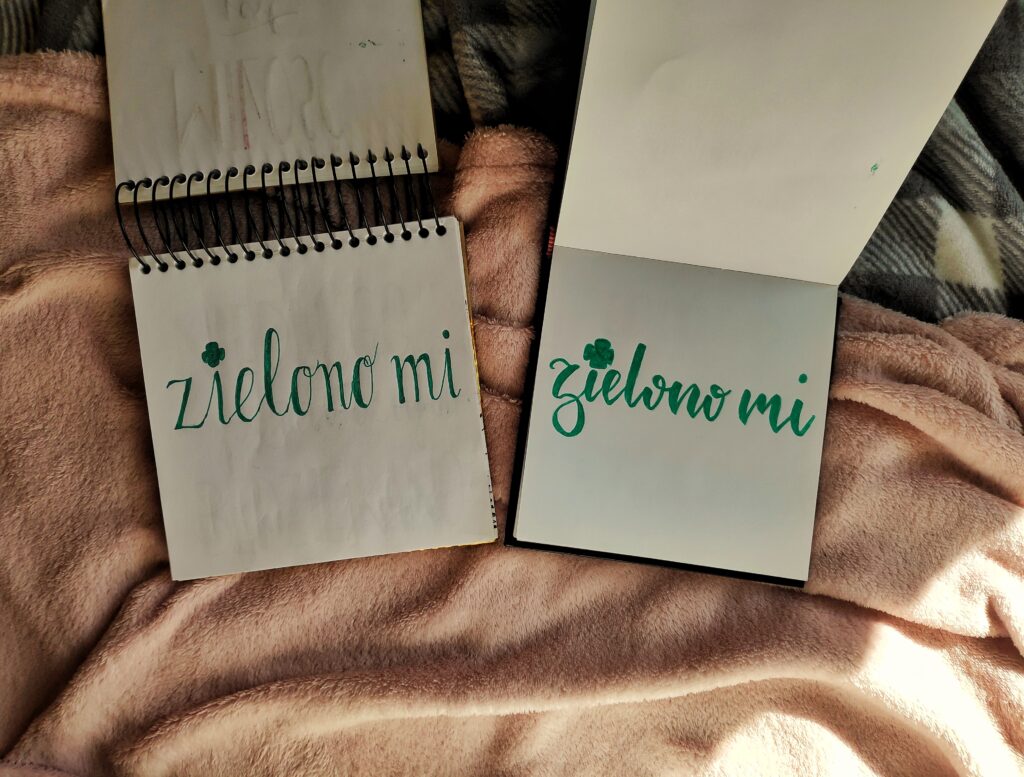 zielono mi
zielono mi